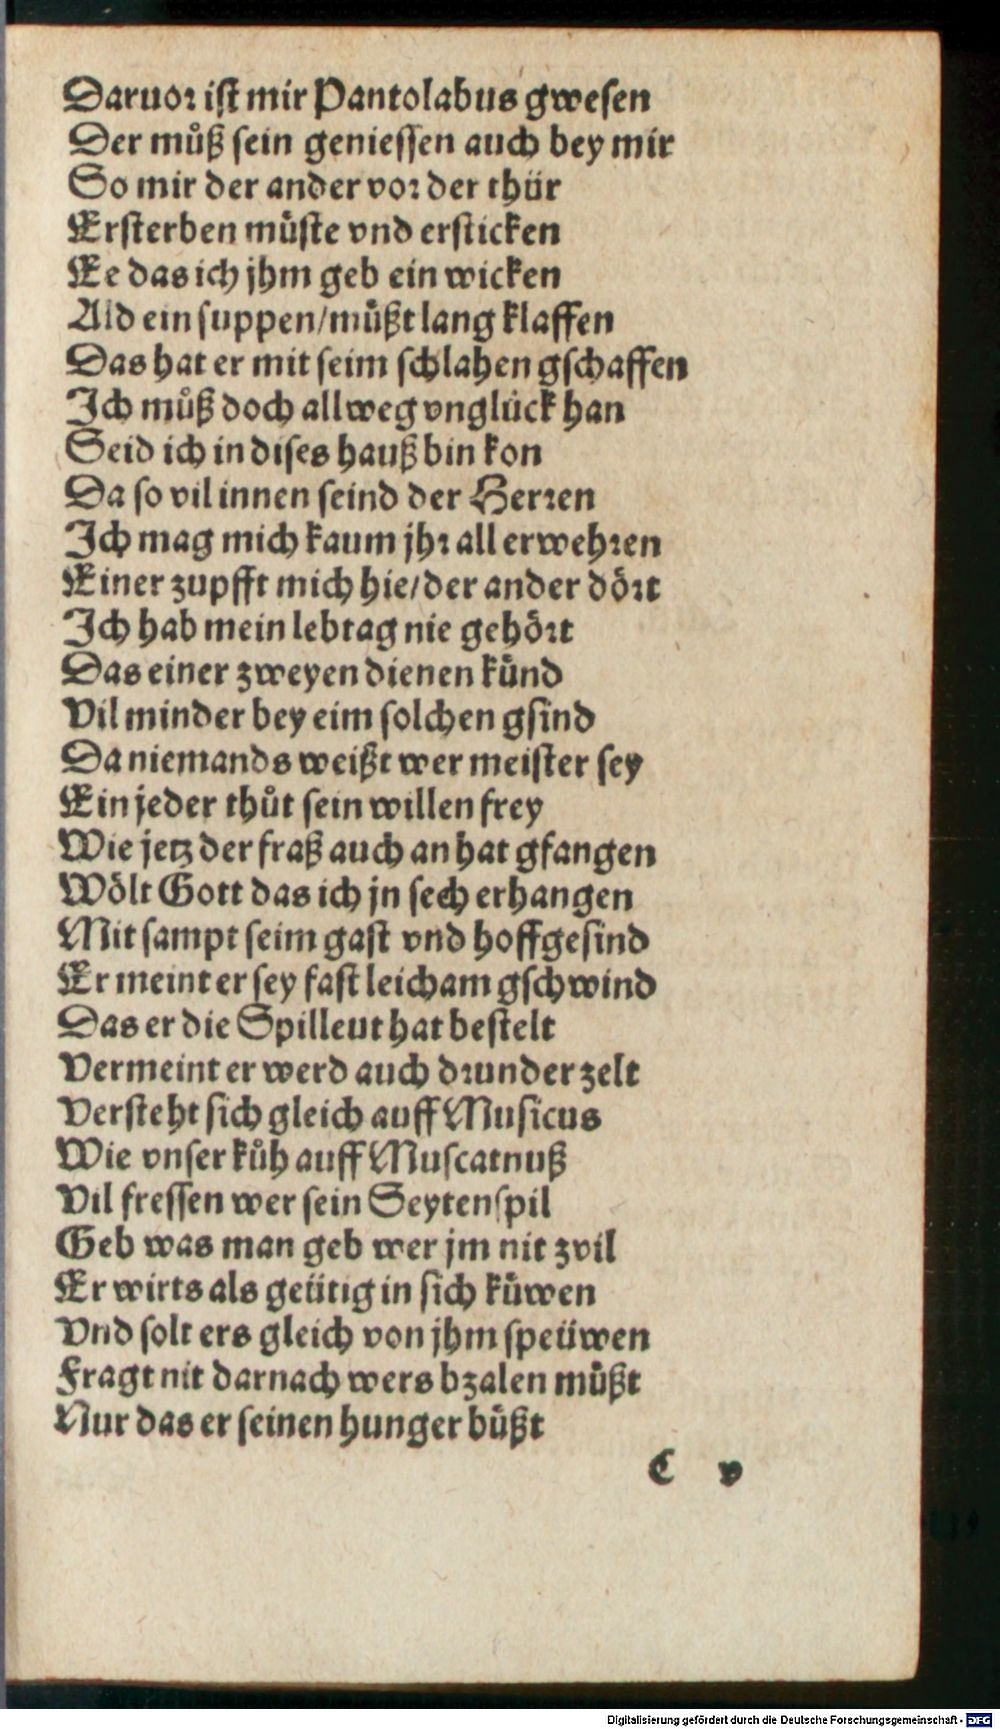 Daruor ist mir Pantolabus gwesen
Der můß sein geniessen auch bey mir
So mir der ander vor der thür
Ersterben müste vnd ersticken
Ee das ich jhm geb ein wicken
Ald ein suppen/můßt lang klaffen
Das hat er mit seim schlahen gschaffen
Ich můß doch allweg vnglück han
Seid ich in dises hauß bin kon
Da so vil innen seind der Herren
Ich mag mich kaum jhr all erwehren
Einer zupfft mich hie/der ander dört
Ich hab mein lebtag nie gehört
Das einer zweyen dienen künd
Vil minder bey eim solchen gsind
Da niemands weißt wer meister sey
Ein jeder thůt sein willen frey
Wie jetz der fraß auch an hat gfangen
Wölt Gott das ich jn sech erhangen
Mit sampt seim gast vnd hoffgesind
Er meint er sey fast leicham gschwind
Das er die Spilleut hat bestelt
Vermeint er werd auch drunder zelt
Versteht sich gleich auff Musicus
Wie vnser kůh auff Muscatnuß
Vil fressen wer sein Seytenspil
Geb was man geb wer jm nit zvil
Er wirts als geütig in sich küwen
Vnd solt ers gleich von jhm speüwen
Fragt nit darnach wers bzalen müßt
Nur das er seinen hunger büßt
C v
Digitalisierung gefördert durch die Deutsche Forschungsgemeinschaft - DFG